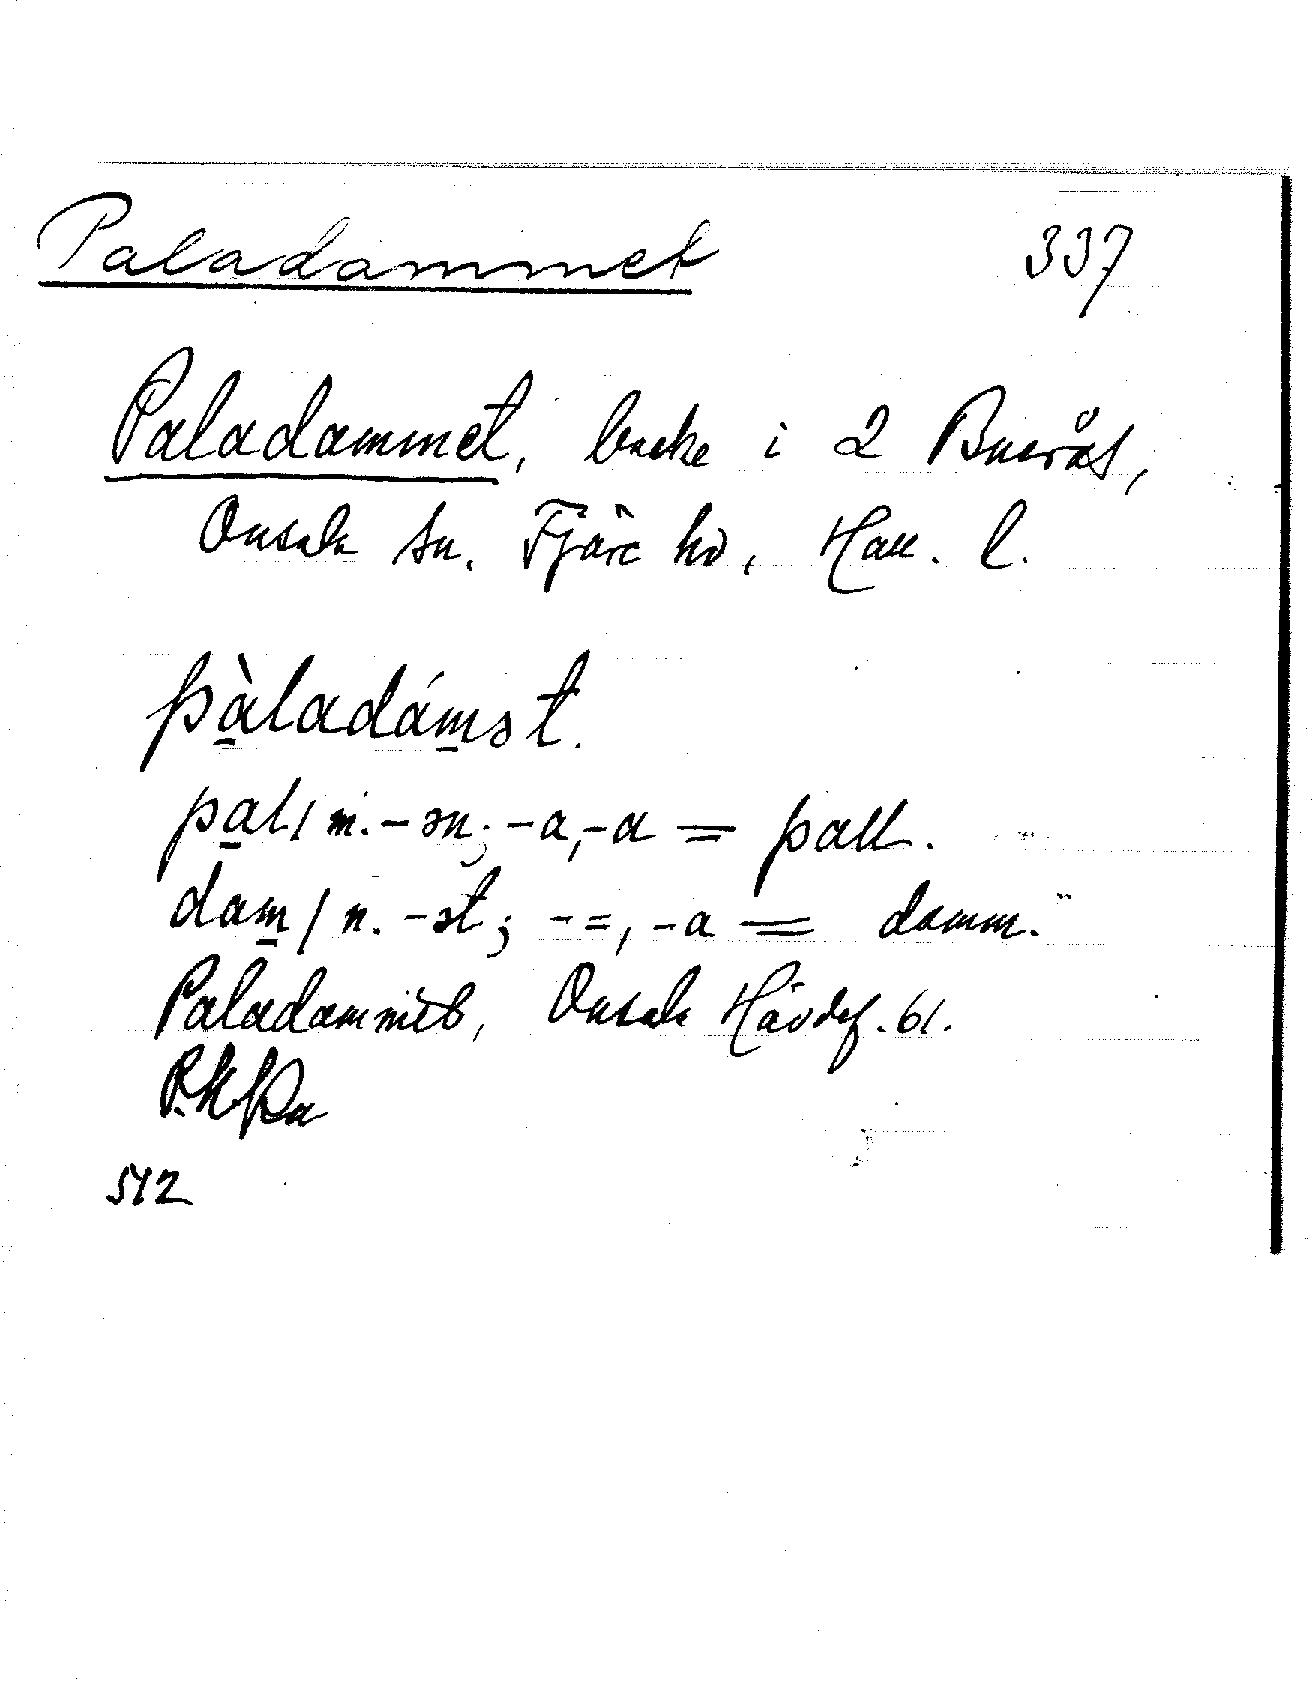 Paladammet 337
Paladammet, backe i 2 Buerås,
Onsala sn. Fjäre hd, Hall. l.
pàladámət.
pal/ m. -ən; -a, -a = pall.
dam/ n. -ət; -=, -a = damm.
Paladammet, Onsala Hävdef. 61.
512